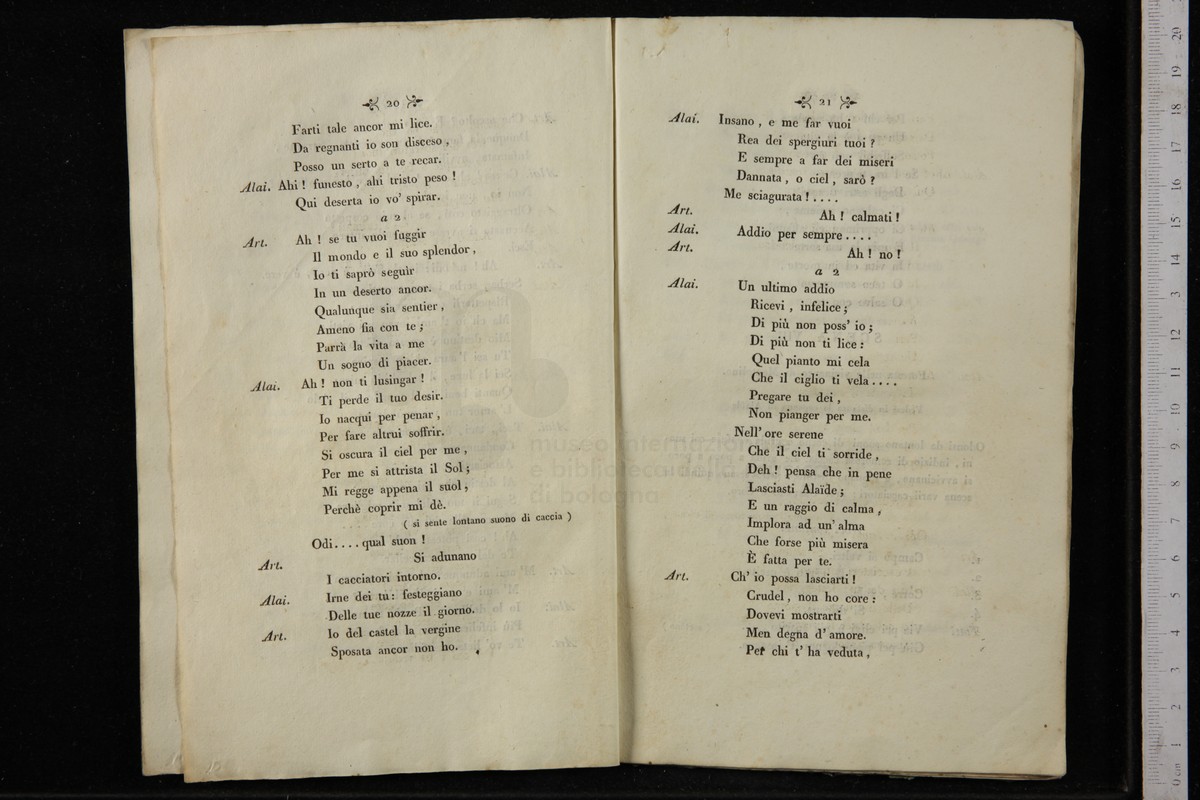 20
Farti tale ancor mi lice.
Da regnanti io son disceso,
Posso un serto a te recar.
Alai. Ahi! funesto, ahi tristo peso!
Qui deserta io vo' spirar.
a 2
Art. Ah! se tu vuoi fuggir
Il mondo e il suo splendor,
Io ti saprò seguir
In un deserto ancor.
Qualunque sia sentier,
Ameno fia con te;
Parrà la vita a me
Un sogno di piacer.
Alai. Ah! non ti lusingar!
Ti perde il tuo desir.
Io nacqui per penar,
Per fare altrui soffrir.
Si oscura il ciel per me,
Per me si attrista il Sol;
Mi regge appena il suol,
Perchè coprir mi dè.
( si sente lontano suono di caccia )
Odi.... qual suon!
Art. Si adunano
I cacciatori intorno.
Alai. Irne dei tu: festeggiano
Delle tue nozze il giorno.
Art. Io del castel la vergine
Sposata ancor non ho.
21
Alai. Insano, e me far vuoi
Rea dei spergiuri tuoi?
E sempre a far dei miseri
Dannata, o ciel, sarò?
Me sciagurata!....
Art. Ah! calmati!
Alai. Addio per sempre....
Art. Ah! no!
a 2
Alai. Un ultimo addio
Ricevi, infelice;
Di più non poss' io;
Di più non ti lice:
Quel pianto mi cela
Che il ciglio ti vela....
Pregare tu dei,
Non pianger per me.
Nell' ore serene
Che il ciel ti sorride,
Deh! pensa che in pene
Lasciasti Alaïde;
E un raggio di calma,
Implora ad un' alma
Che forse più misera
È fatta per te.
Art. Ch' io possa lasciarti!
Crudel, non ho core:
Dovevi mostrarti
Men degna d' amore.
Per chi t' ha veduta,
museo internazionale
e biblioteca della
di bologna
0 cm 1 2 3 4 5 6 7 8 9 10 11 12 13 14 15 16 17 18 19 20